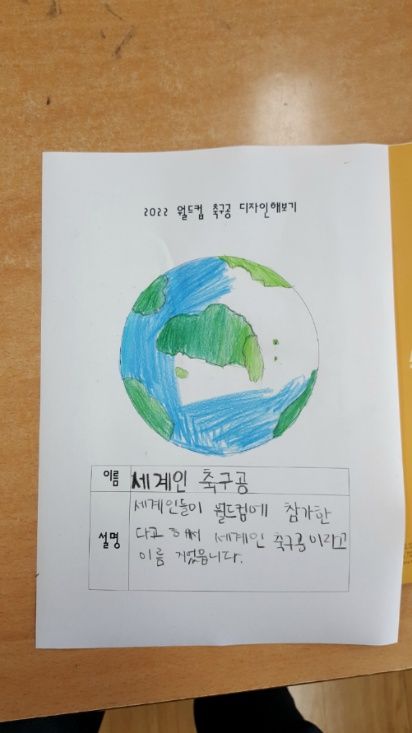 2022 월드컵 축구공 디자인해보기
이름
세계인 축구공
설명
세계인들이 월드컵에 참가한
다고 해서 세계인 축구공이라고
이름 지었음니다.